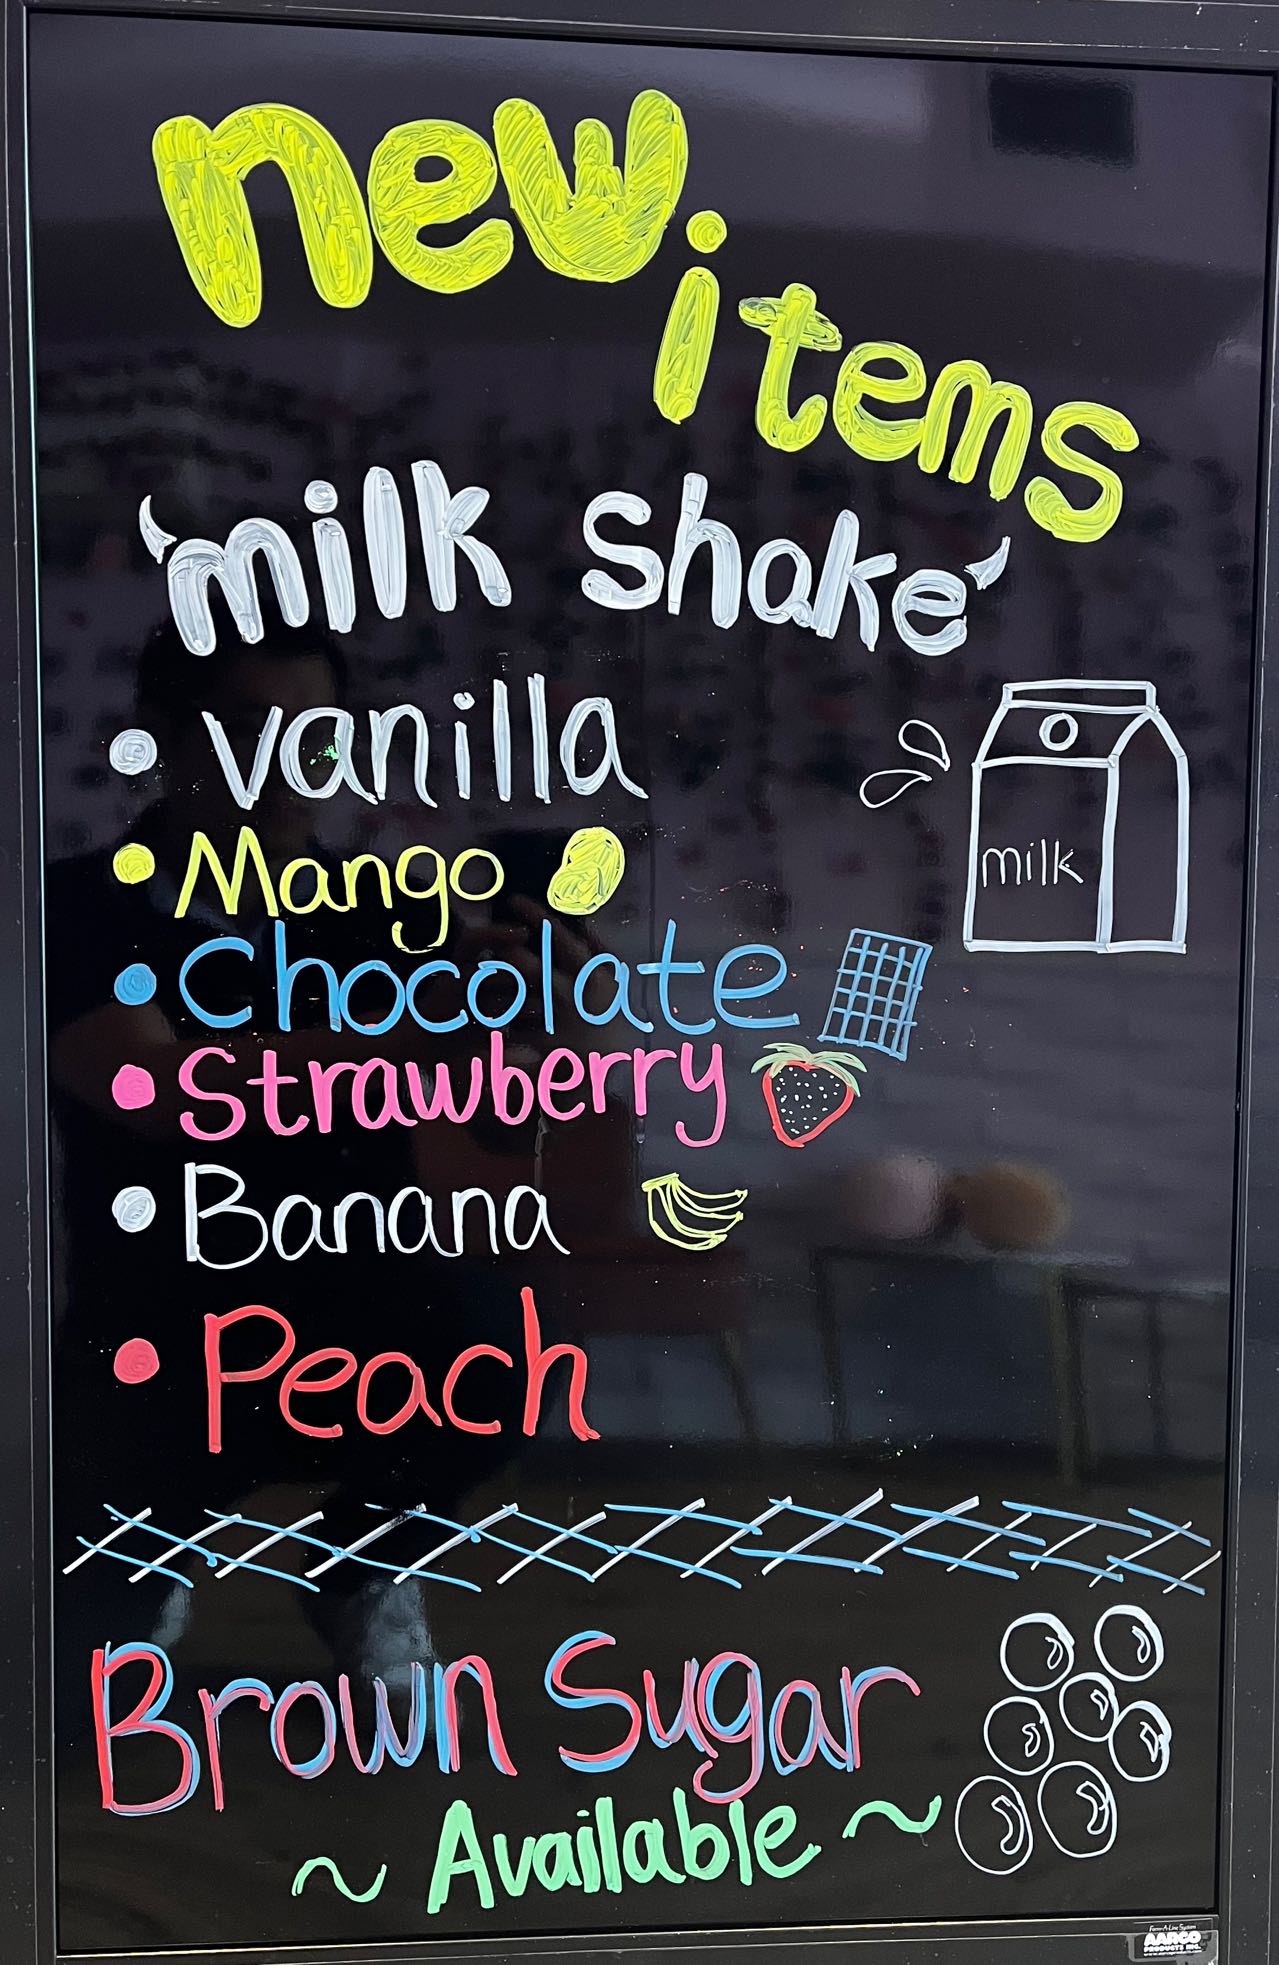 new
items
'milk shake'
• vanilla
• Mango
• Chocolate
• Strawberry
• Banana
• Peach
milk
Brown Sugar
~ Available ~
Form-A-Line System
AARCO
PRODUCTS INC.